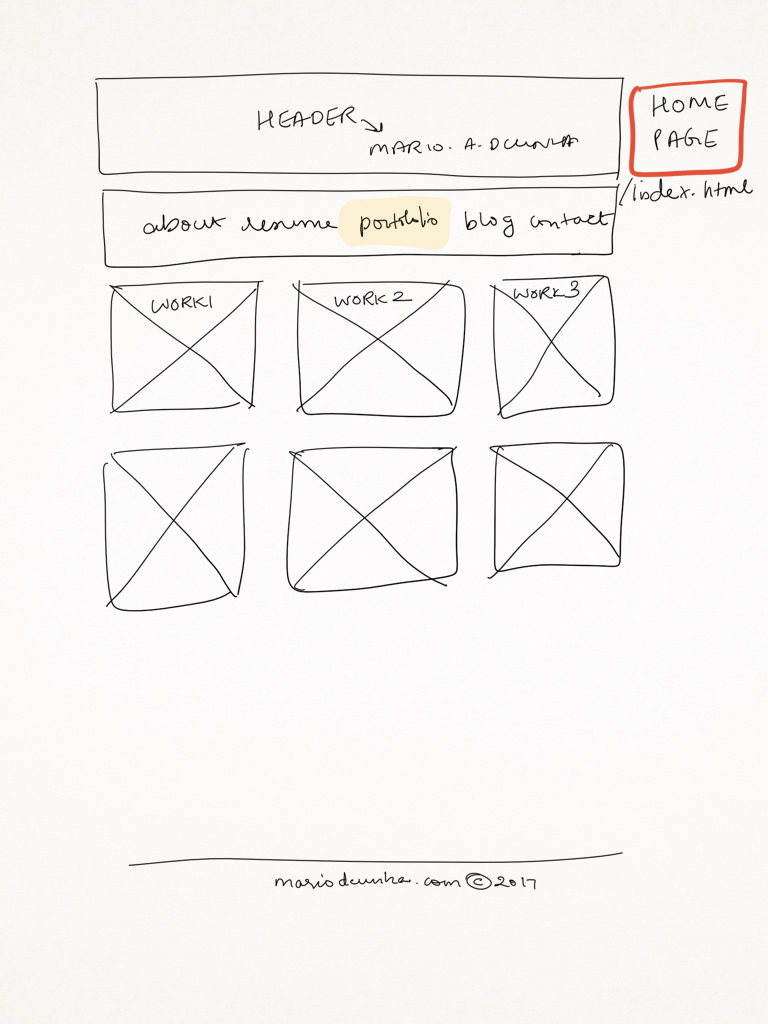 HEADER
MARIO. A. DCUNHA
HOME
PAGE
/index.html
about resume portfolio blog contact
WORK1
WORK 2
WORK 3
mariodcunha.com © 2017